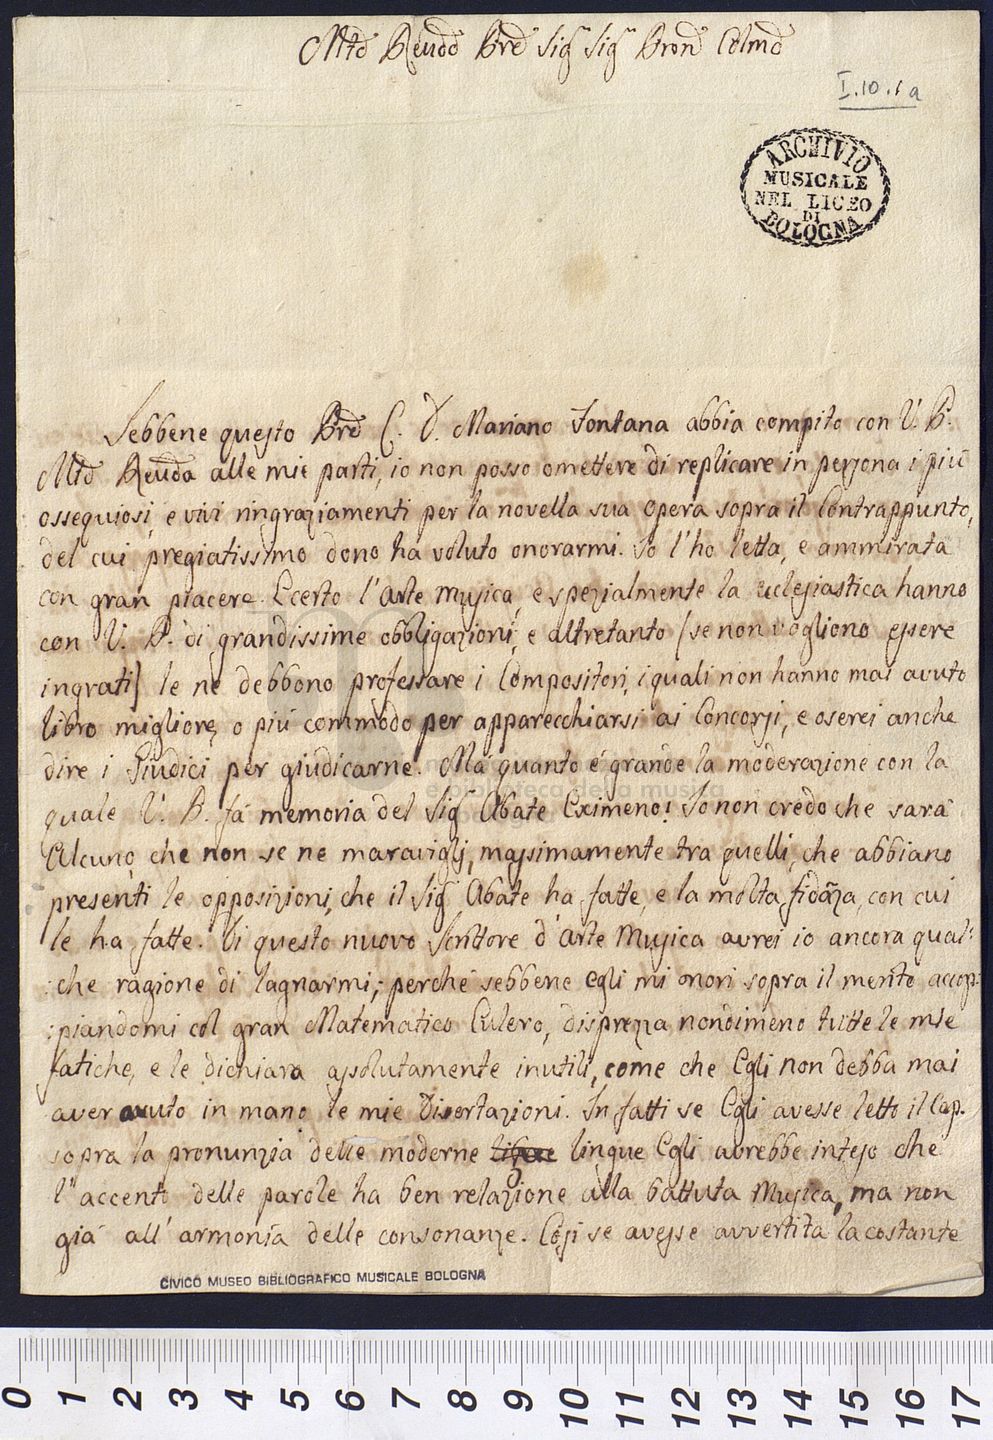 Mto Reudo Pre Sig Sig Pron Colmo
I.10.1a
ARCHIVIO
MUSICALE
NEL LICEO
DI
BOLOGNA
Sebbene questo Pre C. D. Mariano Fontana abbia compito con V. P.
Mto Reuda alle mie parti, io non posso omettere di replicare in persona i più
ossequiosi, e vivi ringraziamenti per la novella sua opera sopra il Contrappunto,
del cui pregiatissimo dono ha voluto onorarmi. Io l'ho letta, e ammirata
con gran piacere. Ecerto l'Arte Musica, e spezialmente la ecclesiastica hanno
con V. P. di grandissime obbligazioni, e altretanto (se non vogliono essere
ingrati) le ne debbono professare i Compositori, i quali non hanno mai avuto
libro migliore, o più commodo per apparecchiarsi ai Concorsi, e oserei anche
dire i Giudici per giudicarne. Ma quanto è grande la moderazione con la
quale V. P. fa memoria del Sig Abate Eximeno! Io non credo che sarà
Alcuno che non se ne maravigli, massimamente tra quelli, che abbiano
presenti le opposizioni, che il Sig Abate ha fatte, e la molta fidāza, con cui
le ha fatte. Di questo nuovo Scrittore d'Arte Musica avrei io ancora qual:
:che ragione di lagnarmi; perché sebbene egli mi onori sopra il merito accop:
:piandomi col gran Matematico Eulero, disprezza nondimeno tutte le mie
fatiche, e le dichiara assolutamente inutili, come che Egli non debba mai
aver avuto in mano le mie Disertazioni. In fatti se Egli avesse letto il Cap.
sopra la pronunzia delle moderne lingue Egli avrebbe inteso che
l'accento delle parole ha ben relazione alla battuta Musica, ma non
già all'armonia delle consonanze. Così se avesse avvertita la costante
CIVICO MUSEO BIBLIOGRAFICO MUSICALE BOLOGNA
0 1 2 3 4 5 6 7 8 9 10 11 12 13 14 15 16 17